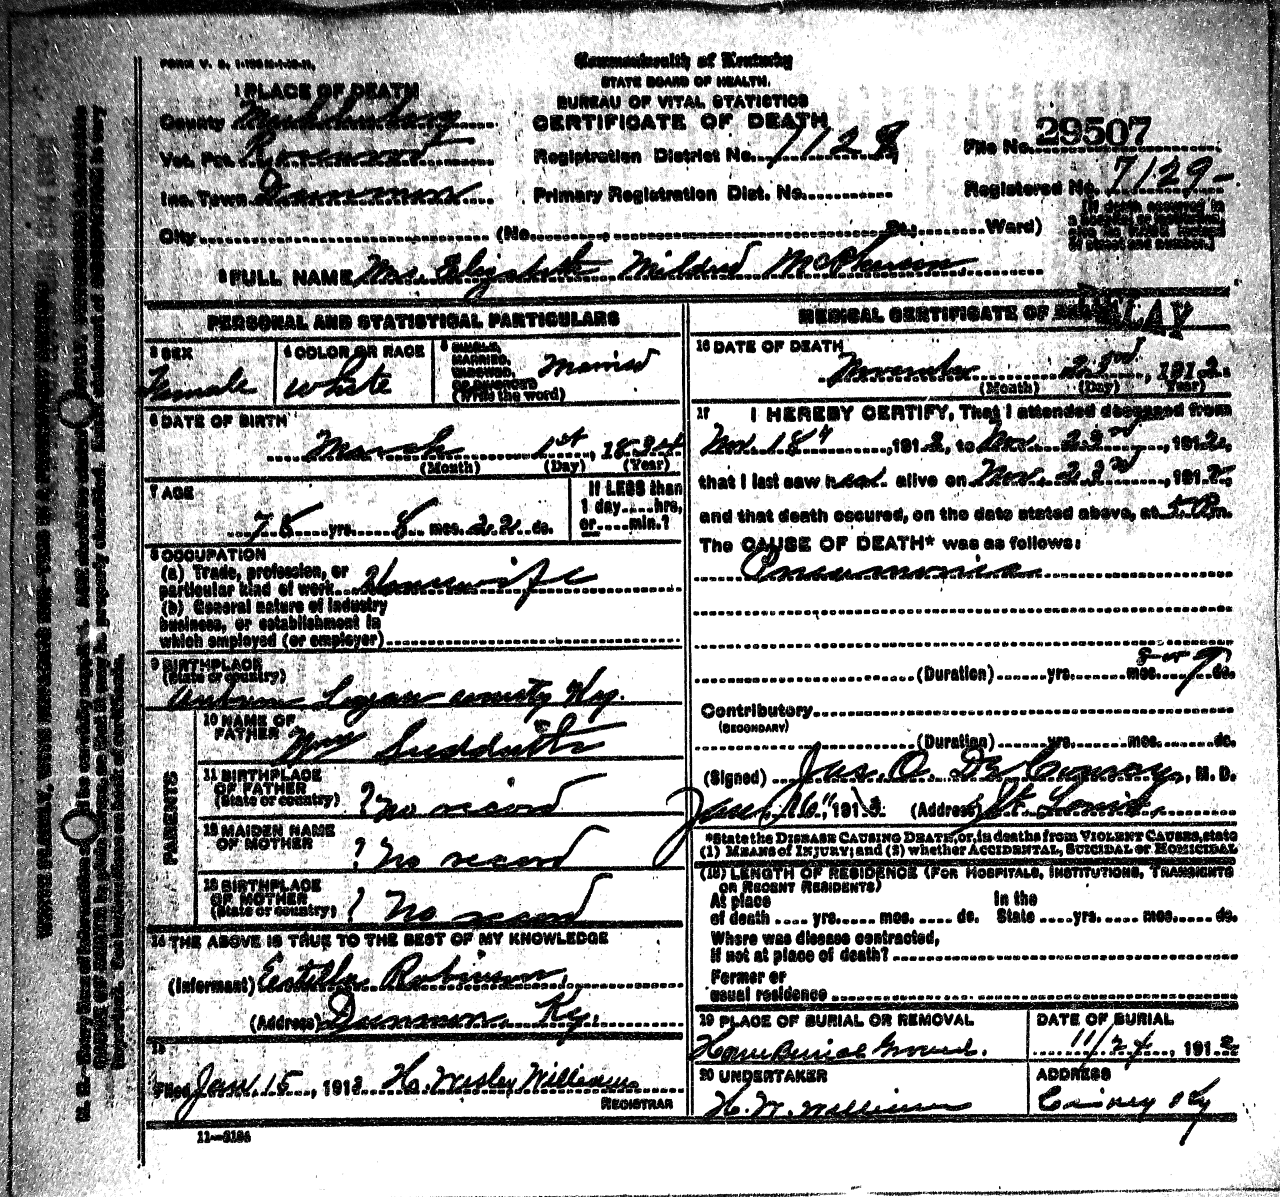 Commonwealth of Kentucky
STATE BOARD OF HEALTH.
BUREAU OF VITAL STATISTICS
CERTIFICATE OF DEATH
1 PLACE OF DEATH
County Muhlenberg
Vot. Pct. Rosewood
Inc. Town Dunmor
City (No. St.; Ward)
Registration District No. 1128
Primary Registration Dist. No.
File No. 29507
Registered No. 7129
2 FULL NAME Mrs. Elizabeth Mildred McPherson
PERSONAL AND STATISTICAL PARTICULARS
3 SEX
Female
4 COLOR OR RACE
White
5 SINGLE, MARRIED, WIDOWED, OR DIVORCED (Write the word)
Married
6 DATE OF BIRTH
March 1st, 1834
(Month) (Day) (Year)
7 AGE
78 yrs. 8 mos. 22 ds.
If LESS than 1 day....hrs, or....min.?
8 OCCUPATION
(a) Trade, profession, or particular kind of work Housewife
(b) General nature of industry business, or establishment in which employed (or employer)
9 BIRTHPLACE
(State or country)
Auburn Logan county Ky.
PARENTS
10 NAME OF FATHER Wm Sudduth
11 BIRTHPLACE OF FATHER (State or country) ? no record
12 MAIDEN NAME OF MOTHER ? no record
13 BIRTHPLACE OF MOTHER (State or country) ? no record
14 THE ABOVE IS TRUE TO THE BEST OF MY KNOWLEDGE
(Informant) Estella Robinson,
(Address) Dunmor Ky.
15
Filed Jan. 15, 1913 H. Wesley Williams
REGISTRAR
11—3184
MEDICAL CERTIFICATE OF
DELAY
16 DATE OF DEATH
November 23rd, 1912
(Month) (Day) Year)
17 I HEREBY CERTIFY, That I attended deceased from
Nov. 18", 1912, to Nov. 23rd, 1912,
that I last saw her alive on Nov. 23rd, 1912,
and that death occured, on the date stated above, at 5 P.m.
The CAUSE OF DEATH* was as follows:
Pneumonia
(Duration) yrs. mos. 8 or 9 ds.
Contributory
(SECONDARY)
(Duration) yrs. mos. ds.
(Signed) Jas. O. De Courcy, M. D.
Jan. 16", 1913 (Address) St. Louis.
*State the DISEASE CAUSING DEATH, or, in deaths from VIOLENT CAUSES, state
(1) MEANS OF INJURY; and (2) whether ACCIDENTAL, SUICIDAL or HOMICIDAL
(18) LENGTH OF RESIDENCE (FOR HOSPITALS, INSTITUTIONS, TRANSIENTS OR RECENT RESIDENTS)
At place of death .... yrs. .... mos. .... ds. In the State .... yrs. .... mos. .... ds.
Where was disease contracted,
If not at place of death?
Former or
usual residence
19 PLACE OF BURIAL OR REMOVAL
Home Burial Ground.
DATE OF BURIAL
11/24, 1912
20 UNDERTAKER
H. W. Williams
ADDRESS
Ky